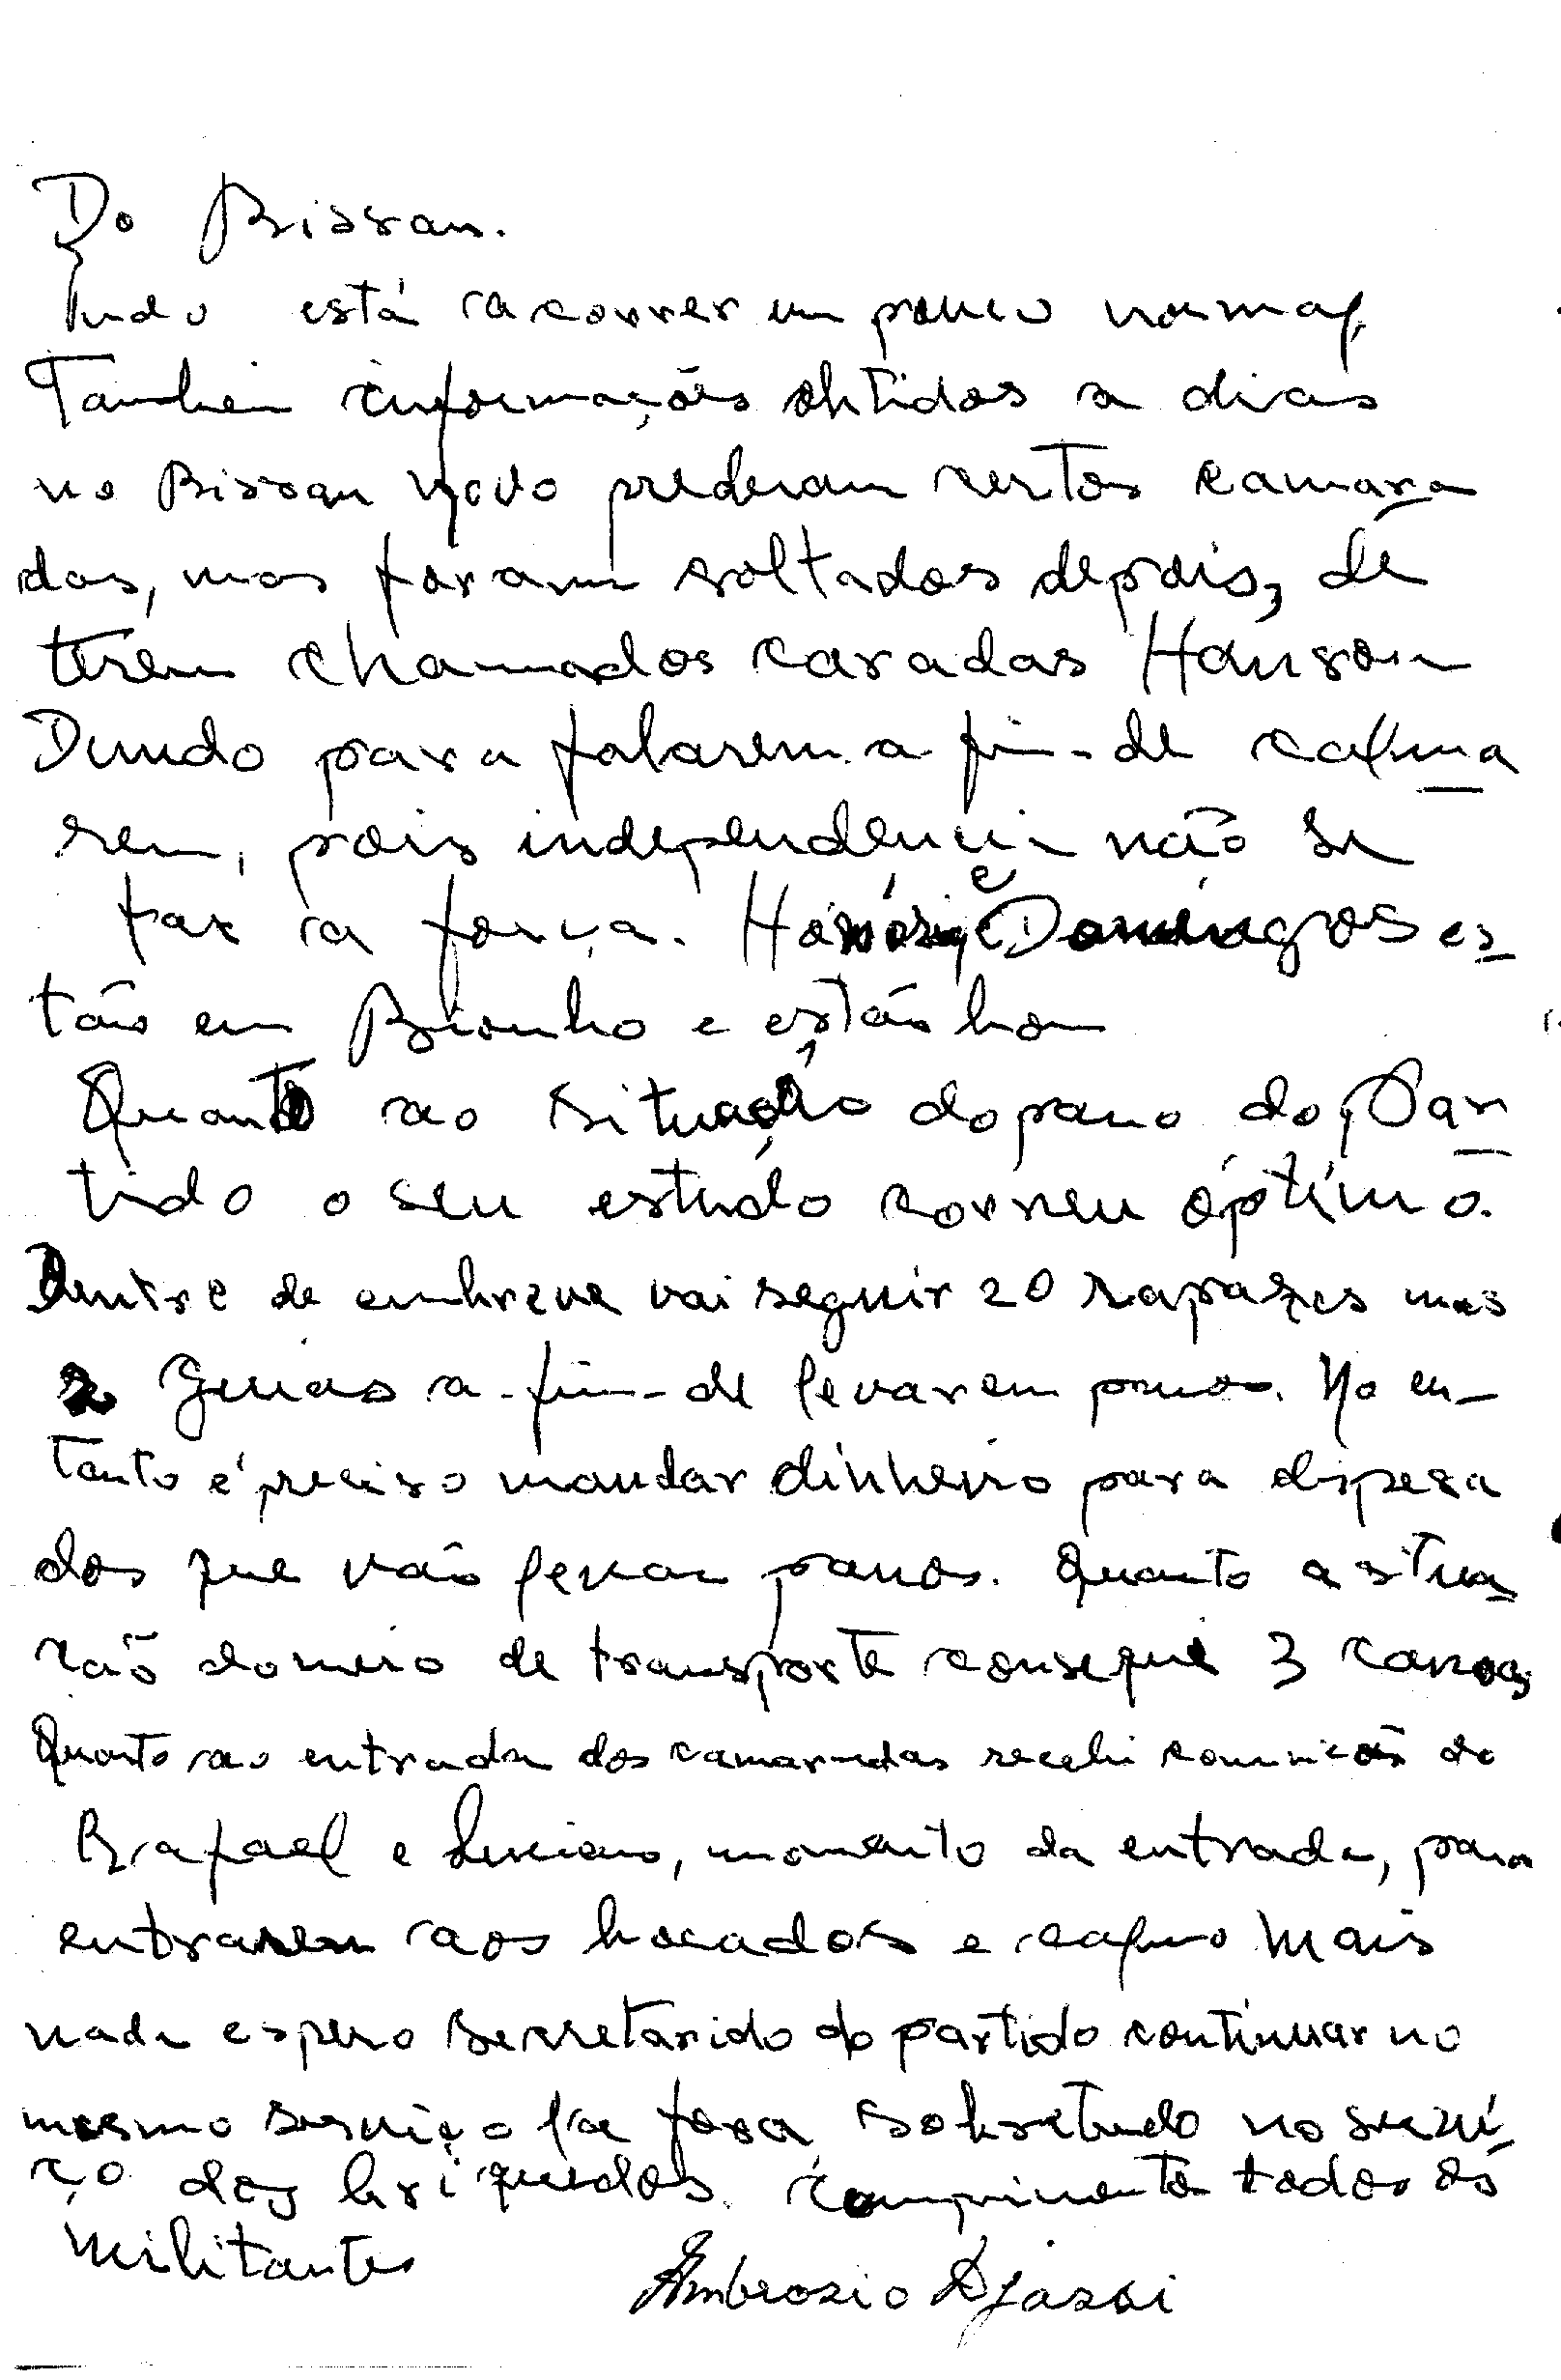 Do Bissau.
Tudo está a correr um pouco normal,
Tambem informações obtidos a dias
no Bissau novo prederam certos camara
das, mas foram soltados depois, de
terem chamados caradas
para falarem a fim-de calma
rem, pois independência não se
faz a força. Honório e Domingos es
tão em e estão bom
Quanto ao situação do pano do Par
tido o seu estudo correu óptimo.
Dentre de embreve vai seguir 20 rapazes mas
2 Guias a-fim-de levarem panos. No en-
tanto é preciso mandar dinheiro para dispesa
dos que vão levar panos. Quanto a situa
ção do meio de transporte consegui 3 canoas
Quanto ao entrada dos camaradas recebi do
Rafael e Luciano, momento da entrada, para
entrarem aos bocados e calmo mais
nada espero Secretarido do partido continuar no
mesmo serviço lá fora sobretudo no servi
ço dos briquedos. Comprimenta todos os
militantes
Ambrosio Djassi